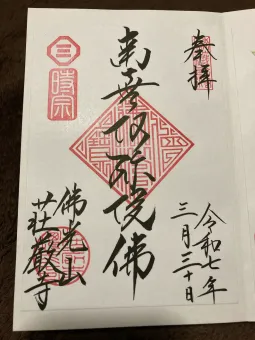 奉拝
令和七年
三月三十日
南無阿弥陀佛
時宗
佛光山
荘厳寺